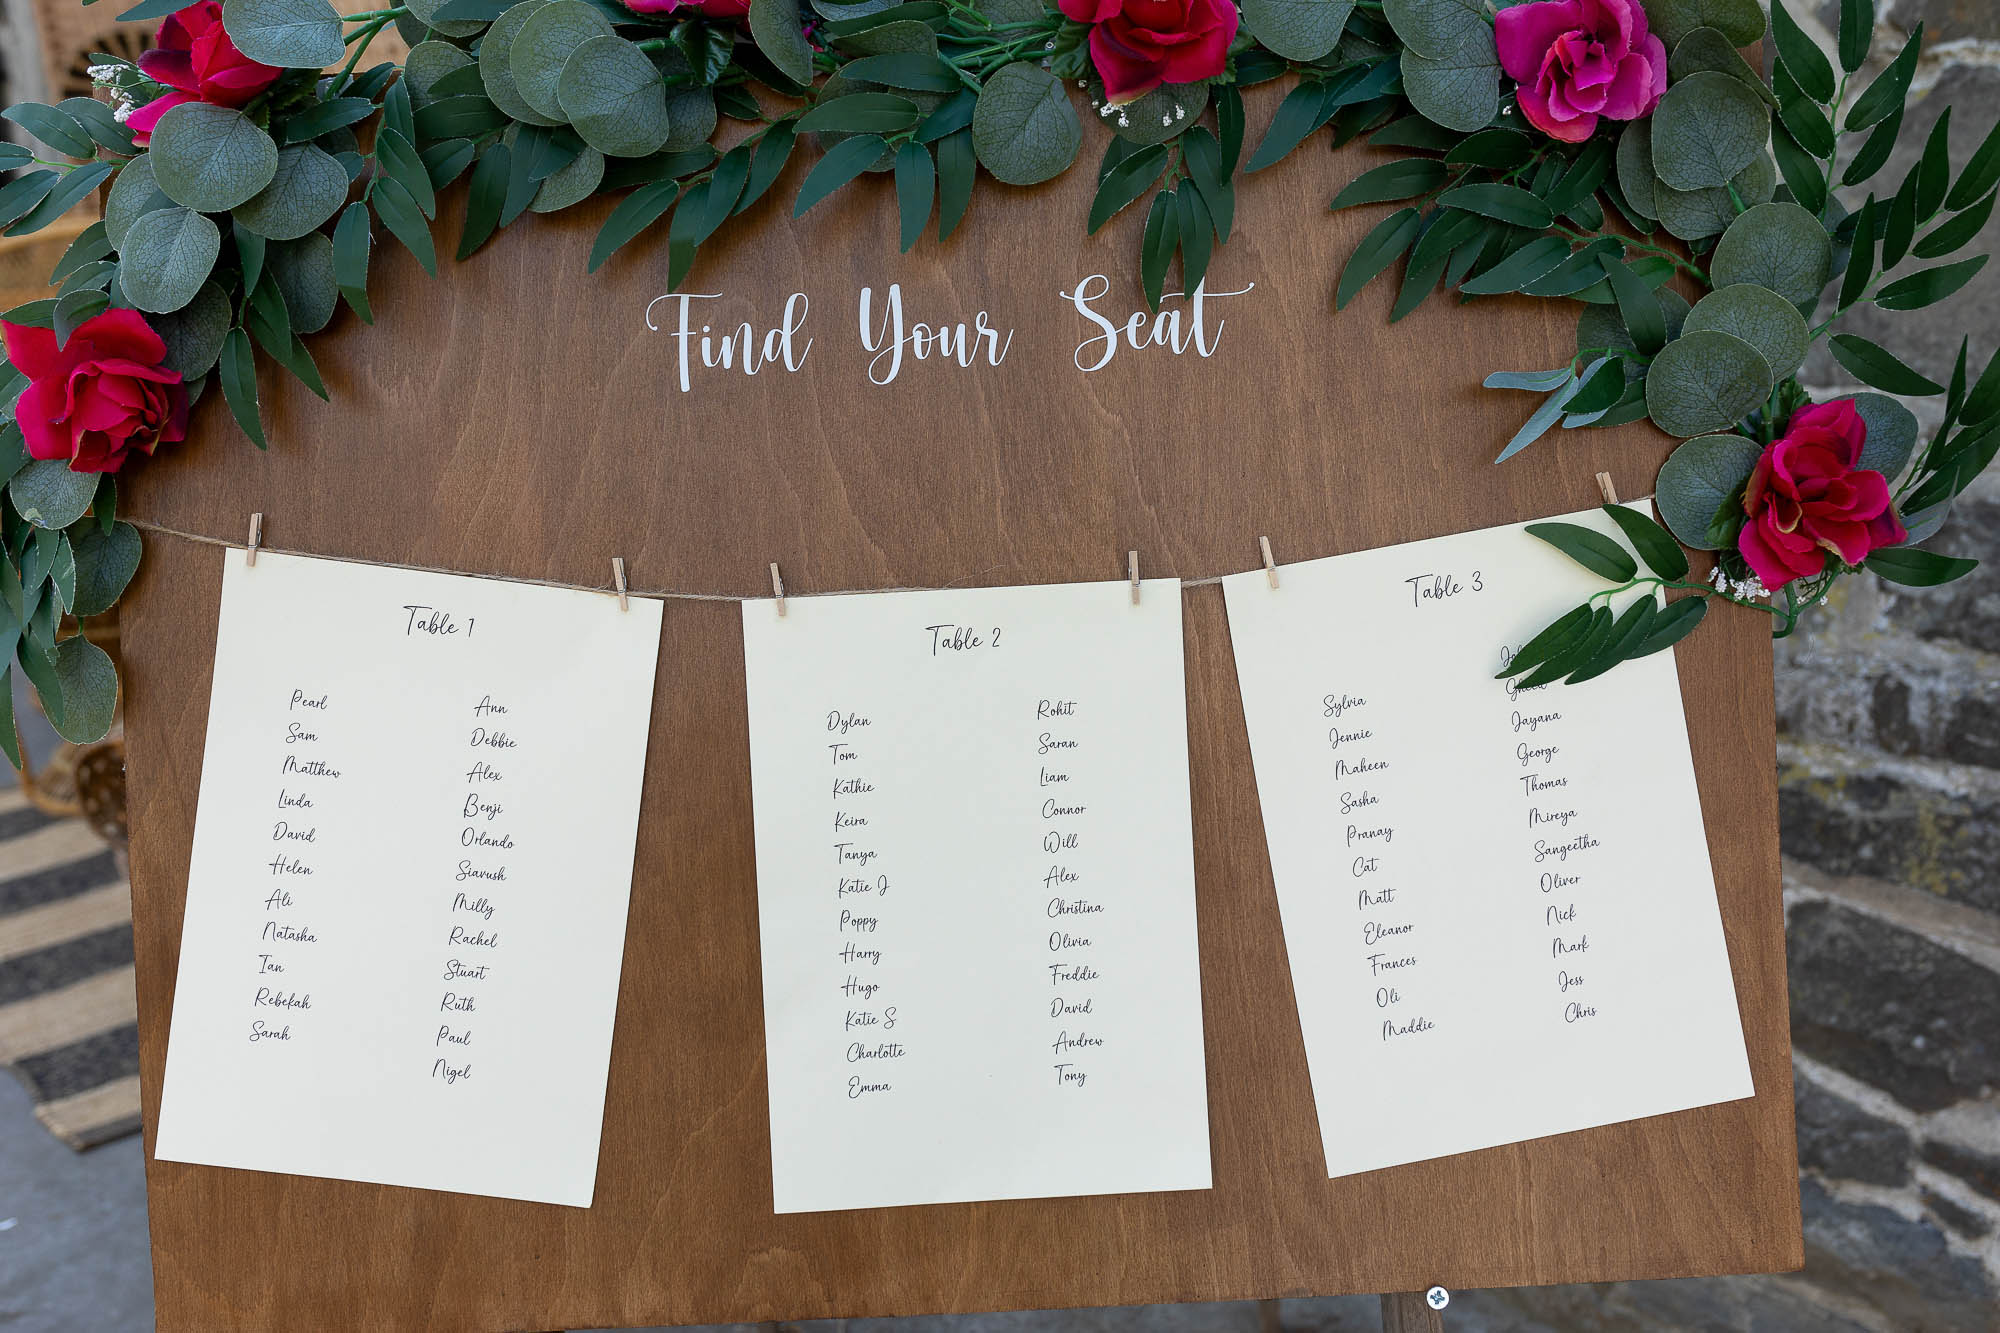 Find Your Seat
Table 1
Pearl
Sam
Matthew
Linda
David
Helen
Ali
Natasha
Ian
Rebekah
Sarah
Ann
Debbie
Alex
Benji
Orlando
Siavush
Milly
Rachel
Stuart
Ruth
Paul
Nigel
Table 2
Dylan
Tom
Kathie
Keira
Tanya
Katie J
Poppy
Harry
Hugo
Katie S
Charlotte
Emma
Rohit
Saran
Liam
Connor
Will
Alex
Christina
Olivia
Freddie
David
Andrew
Tony
Table 3
Sylvia
Jennie
Maheen
Sasha
Pranay
Cat
Matt
Eleanor
Frances
Oli
Maddie
Jayana
George
Thomas
Mireya
Sangeetha
Oliver
Nick
Mark
Jess
Chris